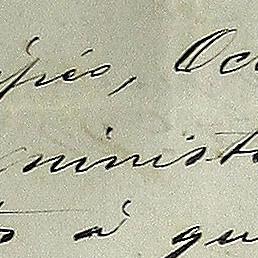 ipéo, Oc
minist
to á qu